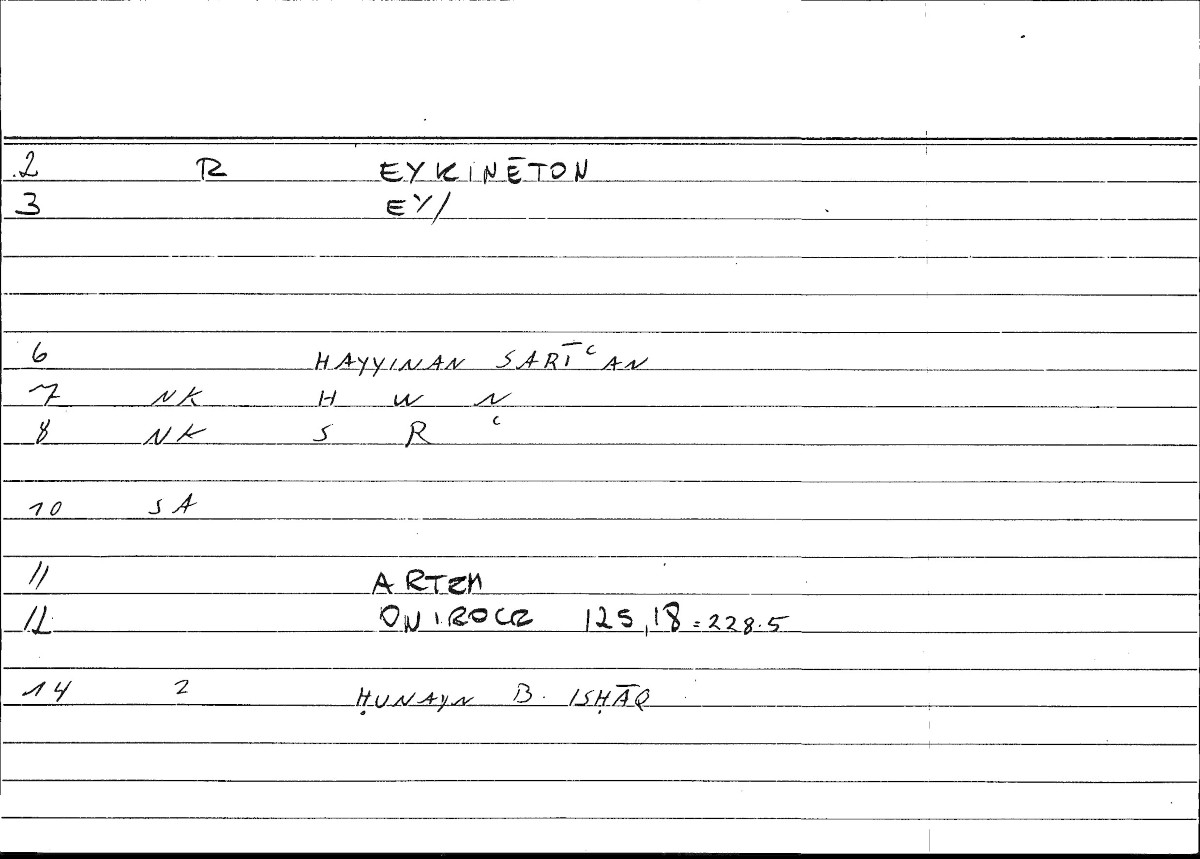 2 R EYKINĒTON
3 EY/
6 HAYYINAN SARĪᶜAN
7 NK H W N
8 NK S R ᶜ
10 SA
11 ARTEM
12 ONIROCR 125,18=228.5
14 2 ḤUNAYN B. ISḤĀQ